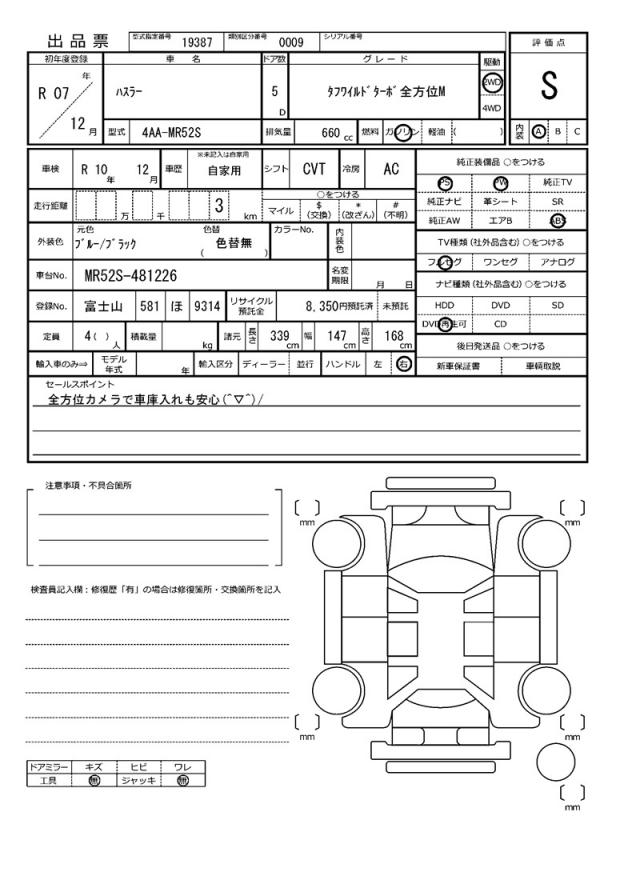 出品票 型式指定番号 19387 類別区分番号 0009 シリアル番号
評価点
S
内装 A B C
初年度登録 車名 ドア数 グレード 駆動
R 07 年 12 月 ハスラー 5 D タフワイルドターボ全方位M 2WD 4WD
型式 4AA-MR52S 排気量 660 cc 燃料 ガソリン 軽油 ( )
車検 R 10 年 12 月 車歴 ※未記入は自家用 自家用 シフト CVT 冷房 AC
走行距離 万 千 3 km ○をつける
マイル $(交換) *(改ざん) #(不明)
外装色 元色 ブルー/ブラック 色替 ( 色替無 ) カラーNo. 内装色
車台No. MR52S-481226 名変期限 月 日
登録No. 富士山 581 ほ 9314 リサイクル預託金 8,350円預託済 未預託
定員 4( ) 人 積載量 kg 諸元 長さ 339 cm 幅 147 cm 高さ 168 cm
輸入車のみ⇒ モデル年式 年 輸入区分 ディーラー 並行 ハンドル 左 右
純正装備品 ○をつける
PS PW 純正TV
純正ナビ 革シート SR
純正AW エアB ABS
TV種類(社外品含む)○をつける
フルセグ ワンセグ アナログ
ナビ種類(社外品含む)○をつける
HDD DVD SD
DVD再生可 CD
後日発送品 ○をつける
新車保証書 車輌取説
セールスポイント
全方位カメラで車庫入れも安心(^▽^)/
注意事項・不具合箇所
検査員記入欄：修復歴「有」の場合は修復箇所・交換箇所を記入
mm
mm
mm
mm
mm
ドアミラー キズ ヒビ ワレ
工具 無 ジャッキ 無